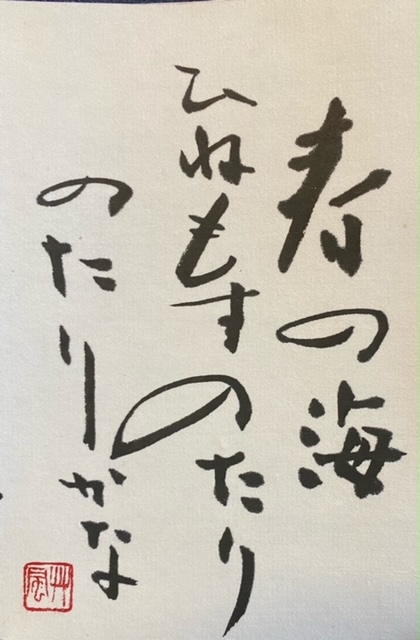 春の海
ひねもすのたり
のたりかな